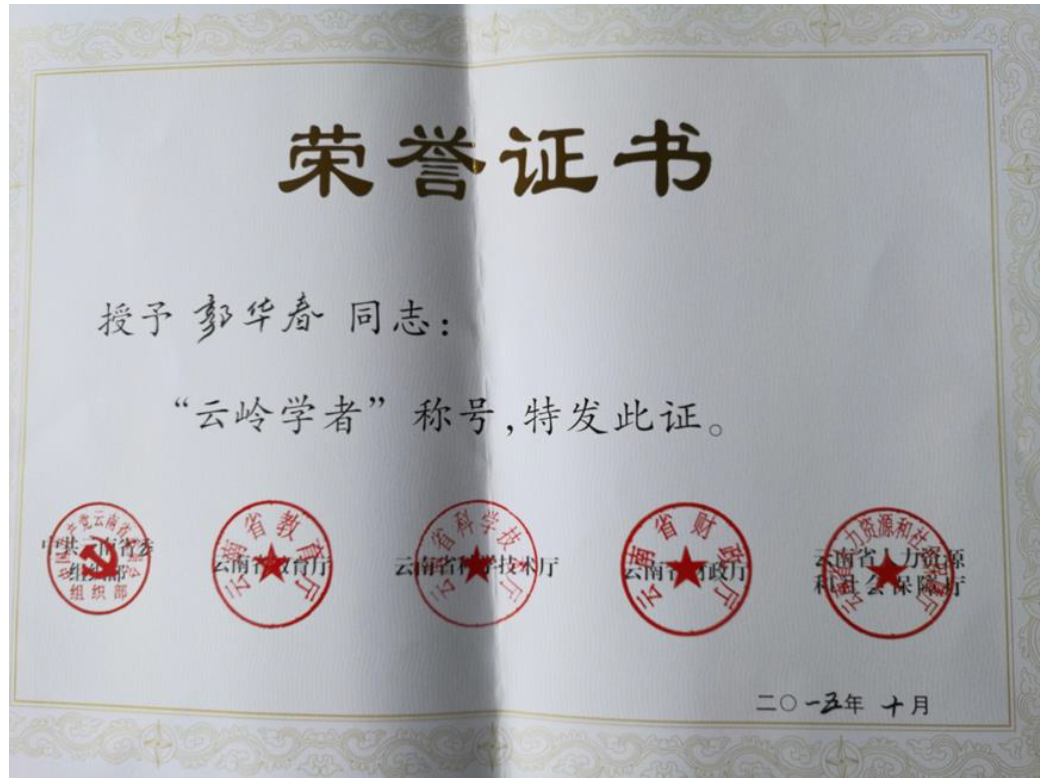 荣誉证书
授予 郭华春 同志：
“云岭学者”称号,特发此证。
中共云南省委 云南省教育厅 云南省科学技术厅 云南省财政厅 云南省人力资源
组织部 和社会保障厅
中国共产党云南省委员会 组织部
云南省教育厅
云南省科学技术厅
云南省财政厅
云南省人力资源和社会保障厅
二〇一五年 十月